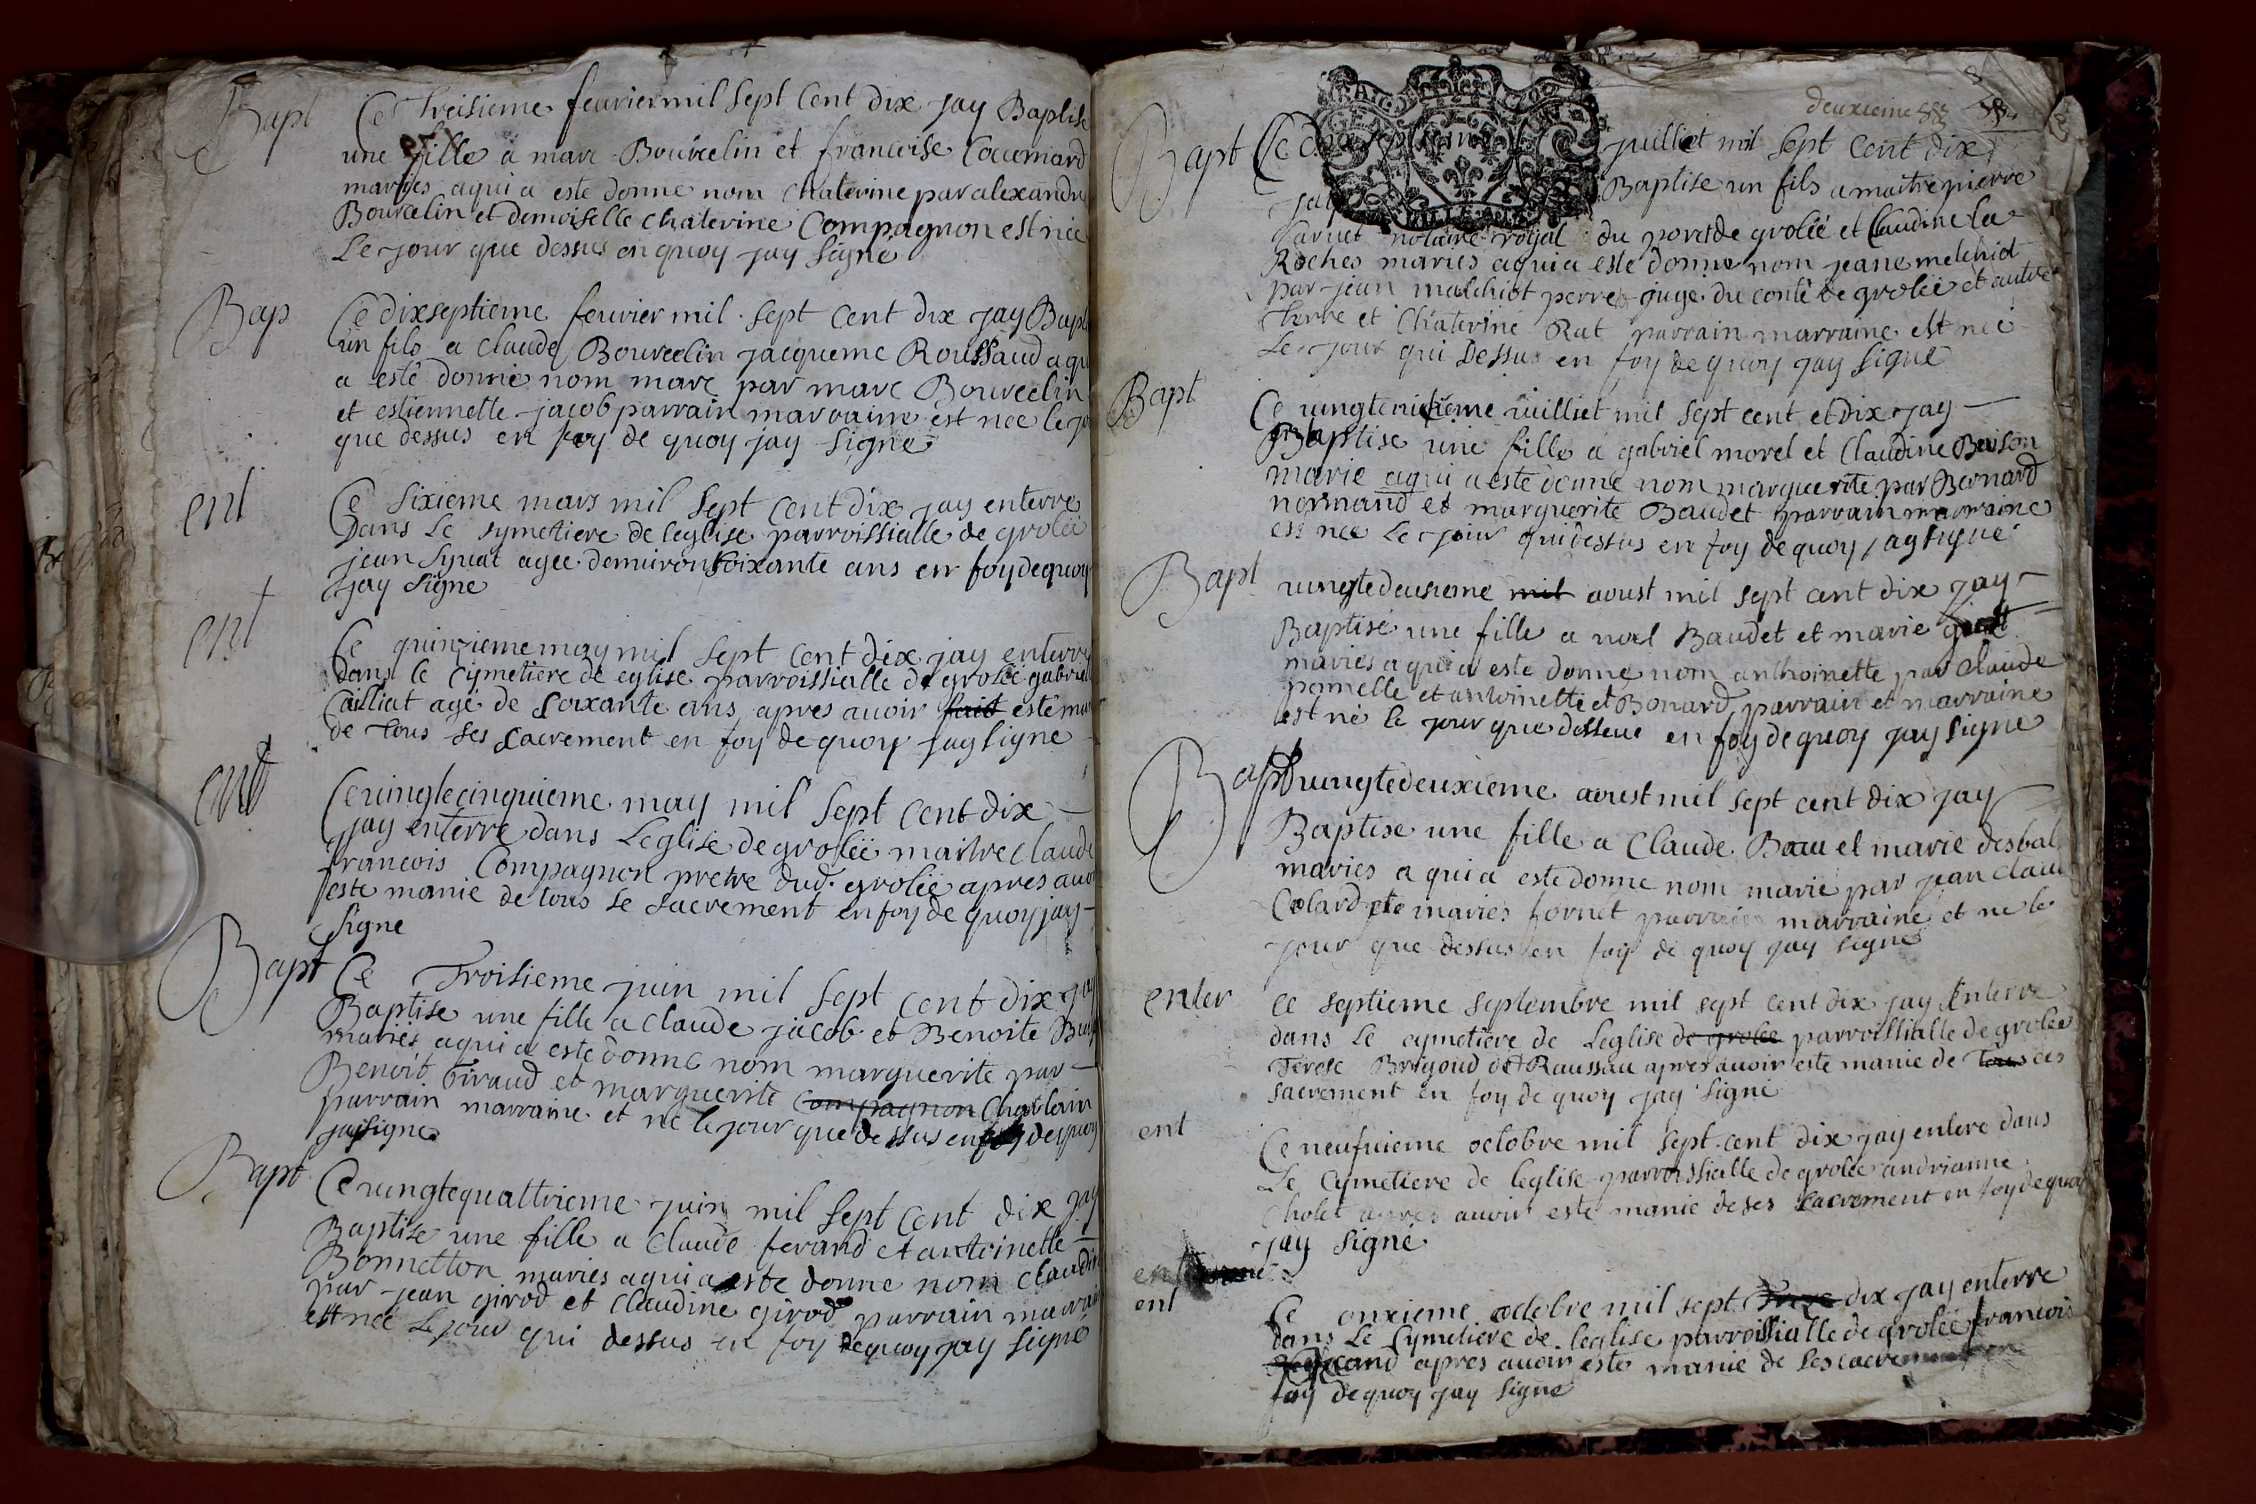 Bapt Ce treisieme feuvier mil sept cent dix jay Baptise
une fille a marc Bourcelin et francoise
maries aqui a este donne nom chaterine par alexandre
Bourcelin et demoiselle chaterine Compagnon est née
Le jour que dessus en quoy jay signé
Bap Ce dixseptieme feuvier mil sept cent dix jay Bapt
un fils a claude Bourcelin jacqueme Roussaud a qui
a esté donné nom marc par marc Bourcelin
et estiennette jacob parrain marraine est nee le jo
que dessus en foy de quoy jay signé
ent Ce sixieme mars mil sept cent dix jay enterre
Dans Le symetiere de leglise parroissialle de grolée
jean agee demuiron soixante ans en foy de quoy
jay signe
ent Ce quinzieme may mil sept cent dix jay enterre
dans le cymetiere de eglise parroissialle de grolée gabriel
Cailliat agé de soixante ans apres auoir fait este mu
de tous ses sacrement en foy de quoy jay signe
ent Ce uingtecinquieme may mil sept cent dix
jay enterre dans Leglise de groleë maitre Claude
francois Compagnon pretre dud. groleë apres auoi
este manie de tous se sacrement en foy de quoy jay
signe
Bapt Ce Troisieme juin mil sept cent dix jay
Baptise une fille a claude jacob et Benoite
mariés aqui a este donne nom marguerite par
Benoit Giraud et marguerite Compagnon
parrain marraine et ne le jour que dessus en foy de quoy
jay signe
Bapt Ce uingtequattrieme juin mil sept cent dix jay
Baptise une fille a claude ferand et antoinette
Bonnetton maries aqui a este donne nom claudin
par jean girod et claudine girod parrain marrai
est née Le jour qui dessus en foy de quoy jay signé
deuxieme
Bapt Ce juilliet mil sept cent dix
jay Baptise un fils a maitre pierre
notaire royal du de grolée et Claudine La
Roches maries aqui a este donne nom jeane melchiot
par jean malchiot perret juge du conté de grolée et autre
Terre et Chaterine Rat parrain marraine est neé
Le jour qui Dessus en foy de quoy jay signé
Bapt Ce juilliet mil sept cent et dix jay
Baptise une fille a gabriel morel et Claudine Buison
marie aqui a este donné nom marguerite par Bernard
normand et marguerite Baudet parrain marraine
est nee Le jour qui dessus en foy de quoy jay signé
Bapt uingtedeusieme mil aoust mil sept cent dix jay
Baptisé une fille a noel Baudet et marie
maries a qui a este donne nom anthoinette par Claude
pennelle et antoinette et Bonard parrain et marraine
est né le jour que desseue en foy de quoy jay signe
Bapt uingtedeuxieme aoust mil sept cent dix jay
Baptise une fille a Claude et marie desbal
maries a qui a este donne nom marie par jean Clau
Colard maries fornet parrain marraine et ne le
jour que dessus en foy de quoy jay signe
enter ce septieme septembre mil sept cent dix jay Enterre
dans Le cymetiere de Leglise de grolée parroissialle de grolée
Terese Brigoud Raussau apres auoir este manie de tous ces
sacrement en foy de quoy jay signé
ent Ce neufuieme octobre mil sept cent dix jay entere dans
Le Cymetiere de leglise parroissialle de grolée andrianne
Cholet apres auoir este manie de ses sacrement en foy de quoy
jay signé
ent
ent Ce onxieme octobre mil sept dix jay enterre
dans Le Cymetiere de leglise parroissialle de grolée francois
apres auoir este manie de ses sacrement
foy de quoy jay signe